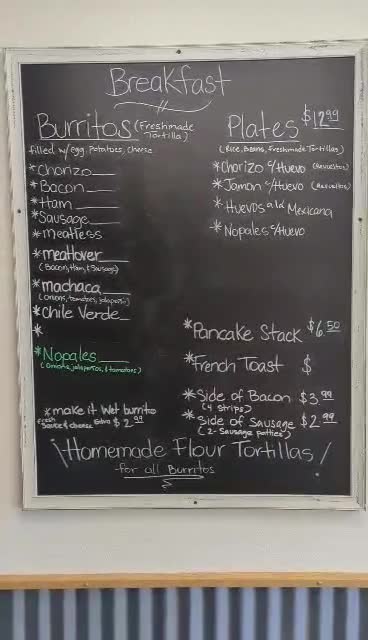 Breakfast
Burritos (Freshmade Tortilla)
filled w/egg, Potatoes, Cheese
*Chorizo
*Bacon
*Ham
*Sausage
*meatless
*meatlover
(Bacon, Ham, & Sausage)
*machaca
(Onions, tomatoes, jalapeño)
*Chile Verde
*
*Nopales
(Onions, jalapeños, & tomatoes)
*make it Wet burrito
Fresh Sauce & cheese Extra $2.99
Plates $12.99
(Rice, Beans, Freshmade Tortillas)
*Chorizo c/Huevo (Revueltos)
*Jamon c/Huevo (Revueltos)
*Huevos a la Mexicana
*Nopales c/Huevo
*Pancake Stack $6.50
*French Toast $
*Side of Bacon $3.99
(4 Strips)
*Side of Sausage $2.99
(2-Sausage patties)
¡Homemade Flour Tortillas!
-for all Burritos